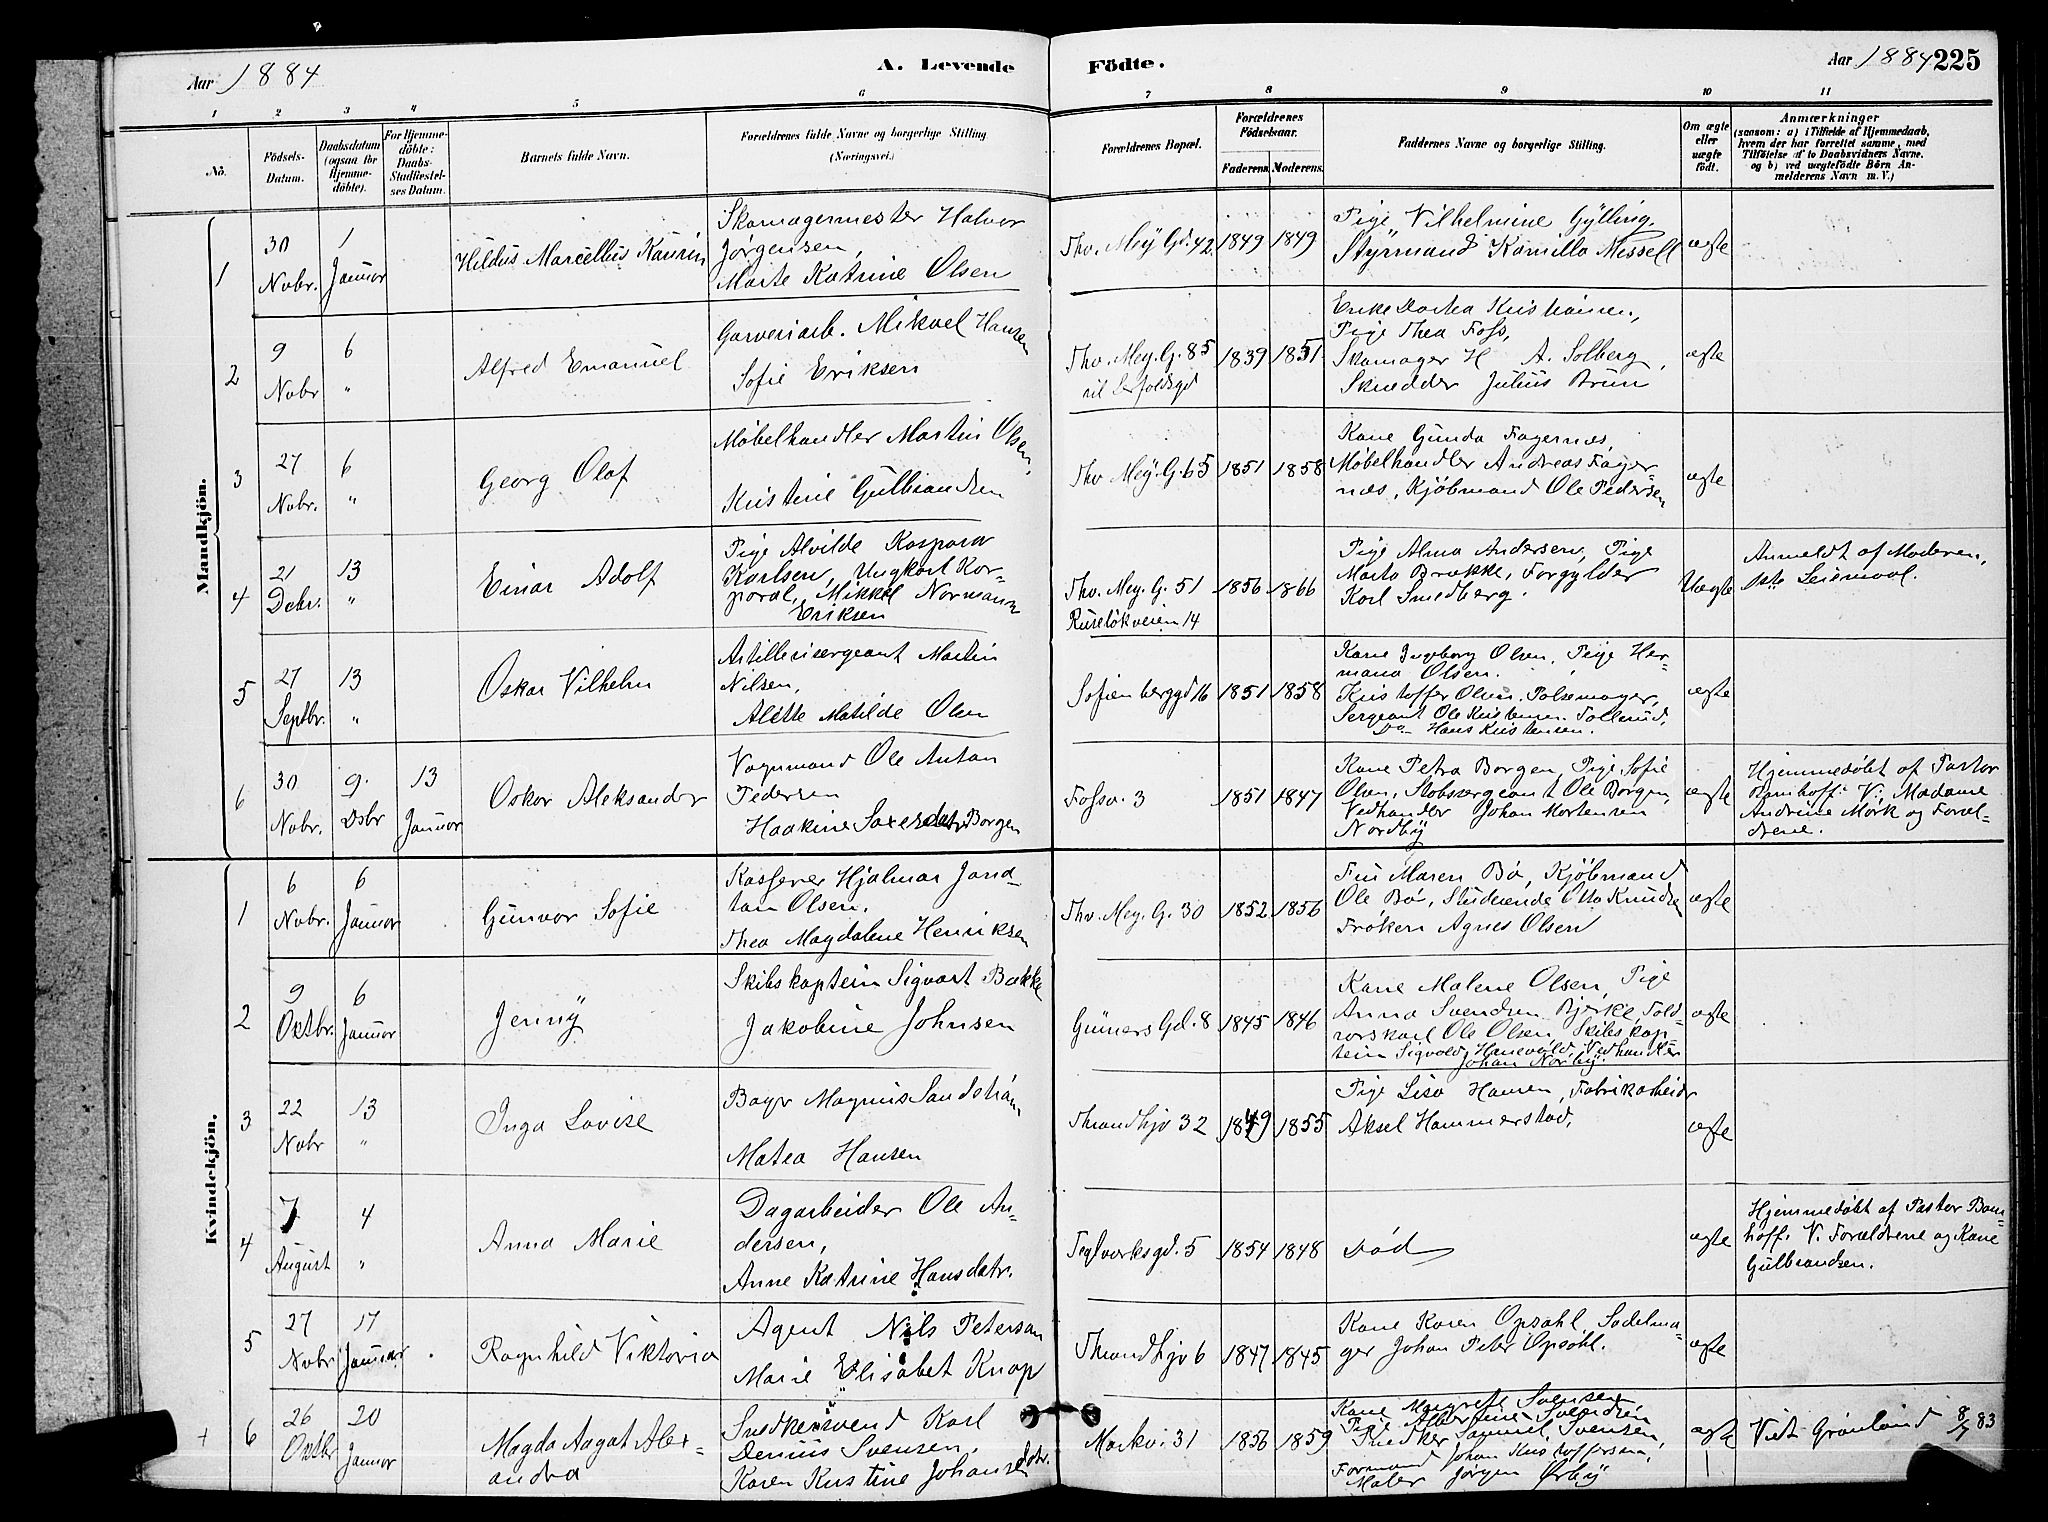 Aar 1884
A. Levende
Födte.
Aar 1884 225
1 2 3 4 5 6 7 8 9 10 11
No.
Födsels-
Datum.
Daabsdatum
(ogsaa for
Hjemme-
döbte).
For Hjemme-
döbte:
Daabs-
Stadfæstel-
ses Datum.
Barnets fulde Navn.
Forældrenes fulde Navne og borgerlige Stilling
(Næringsvei.)
Forældrenes Bopæl.
Forældrenes
Födselsaar.
Faderens. Moderens.
Faddernes Navne og borgerlige Stilling.
Om ægte
eller
uægte
födt.
Anmærkninger
(saasom: a) i Tilfælde af Hjemmedaab,
hvem der har forrettet samme, med
Tilföielse af to Daabsvidners Navne.
og b) ved uægtefödte Börn An-
melderens Navn m. V.)
Mandkjön.
1
30
Nobr.
1
Januar
Hildus Marcellus Kaurin
Skomagermester Halvor
Jørgensen,
Marte Katrine Olsen
Thv. Mey Gd. 42.
1849
1849
Pige Vilhelmine Gylling.
Styrmand Kamillo Messell
ægte
2
9
Nobr
6
"
Alfred Emanuel
Garveriarb. Mikael Hansen
Sofie Eriksen
Thv. Mey. G. 85
1839
1851
Enke Dorthea Kristiansen,
Pige Thea Foss,
Skomager H A. Solberg,
Skrædder Julius Brun
ægte
3
27
Nobr.
6
"
Georg Olaf
Møbelhandler Martin Olsen,
Kristine Gulbrandsen
Thv. Mey. G. 65
1851
1858
Kone Gunda Fagernæs,
Møbelhandler Andreas Fager
næs, Kjøbmand Ole Pedersen
ægte
4
21
Debr.
13
"
Einar Adolf
Pige Alvilde Kaspara
Karlsen, Ungkarl Kor-
poral, Mikkel Normann
Eriksen
Thv. Mey. G. 51
Ruseløkveien 14
1856
1866
Pige Alma Andersen, Pige
Marta Brække, Forgylder
Karl Smedberg.
Uægte
Anmeldt af Moderen,
Leiermaal.
5
27
Septbr.
13
"
Oskar Vilhelm
Artillerisergeant Martin
Nilsen,
Alette Matilde Olsen
Sofienberggd 16
1851
1858
Kone Ingeborg Olsen, Pige Her-
mana Olsen.
Kristoffer Olsen Pølsemager,
Sergeant Ole Kristensen Tollerud,
Do Hans Kristensen.
ægte
6
30
Nobr.
9.
Dsbr
13
Januar
Oskar Aleksander
Vognmand Ole Anton
Pedersen
Haakine Saxesdatr Borgen
Fossv. 3
1851
1847
Kone Petra Borgen, Pige Sofie
Olsen, Stabssergeant Ole Borgen,
Vedhandler Johan Mortensen
Nordby
ægte
Hjemmedøbt af Pastor
Bamhoff: V: Madame
Andrine Mørk og Foræl-
drene.
Kvindekjön.
1
6
Nobr.
6
Januar
Gunvor Sofie
Kasserer Hjalmar Jona-
tan Olsen.
Thea Magdalene Henriksen
Thv. Mey. G. 30
1852
1856
Fru Maren Bø, Kjøbmand
Ole Bø, Studerende Otto Knudsen
Frøken Agnes Olsen
ægte
2
9
Oktbr.
6
Januar
Jenny
Skibskaptein Sigvart Bakke
Jakobine Johnsen
Gruners Gd. 8
1845
1846
Kone Malene Olsen, Pige
Anna Svendsen Bjerke Told-
rorskarl Ole Olsen, Skibskap-
tein Sigvold Hanevold, Vedhandler
Johan Norby
ægte
3
22
Nobr
13
"
Inga Lovise
Bager Magnus Sandstrøm
Matea Hansen
Throndhjv 32
1849
1855
Pige Lisa Hansen, Fabrikarbeider
Aksel Hammerstad,
ægte
4
7
August
4
"
Anna Marie
Dagarbeider Ole An-
dersen,
Anne Katrine Hansdatr.
Teglverksgd. 5
1854
1848
Død
ægte
Hjemmedøbt af Pastor Bam-
hoff. V. Forældrene og Kone
Gulbrandsen.
5
27
Nobr
17
Januar.
Ragnhild Viktoria
Agent Nils Peterson
Marie Elisabet Knap
Throndhjv 6
1847
1845
Kone Karen Opsahl, Sadelma-
ger Johan Peter Opsahl.
ægte
+ 6
26
Oktbr
20
Januar
Magda Aagot Alex-
andra
Snedkersvend Karl
Denius Svensen.
Karen Kristine Johansedatr.
Markv. 31
1856
1859
Kone Margrete Svensen
Pige Albertine Svendsen
Snedker Samuel Svensen,
Formand Johan Kristoffersen,
Maler Jørgen Ørby
ægte
Viet Grønland 8/7 83